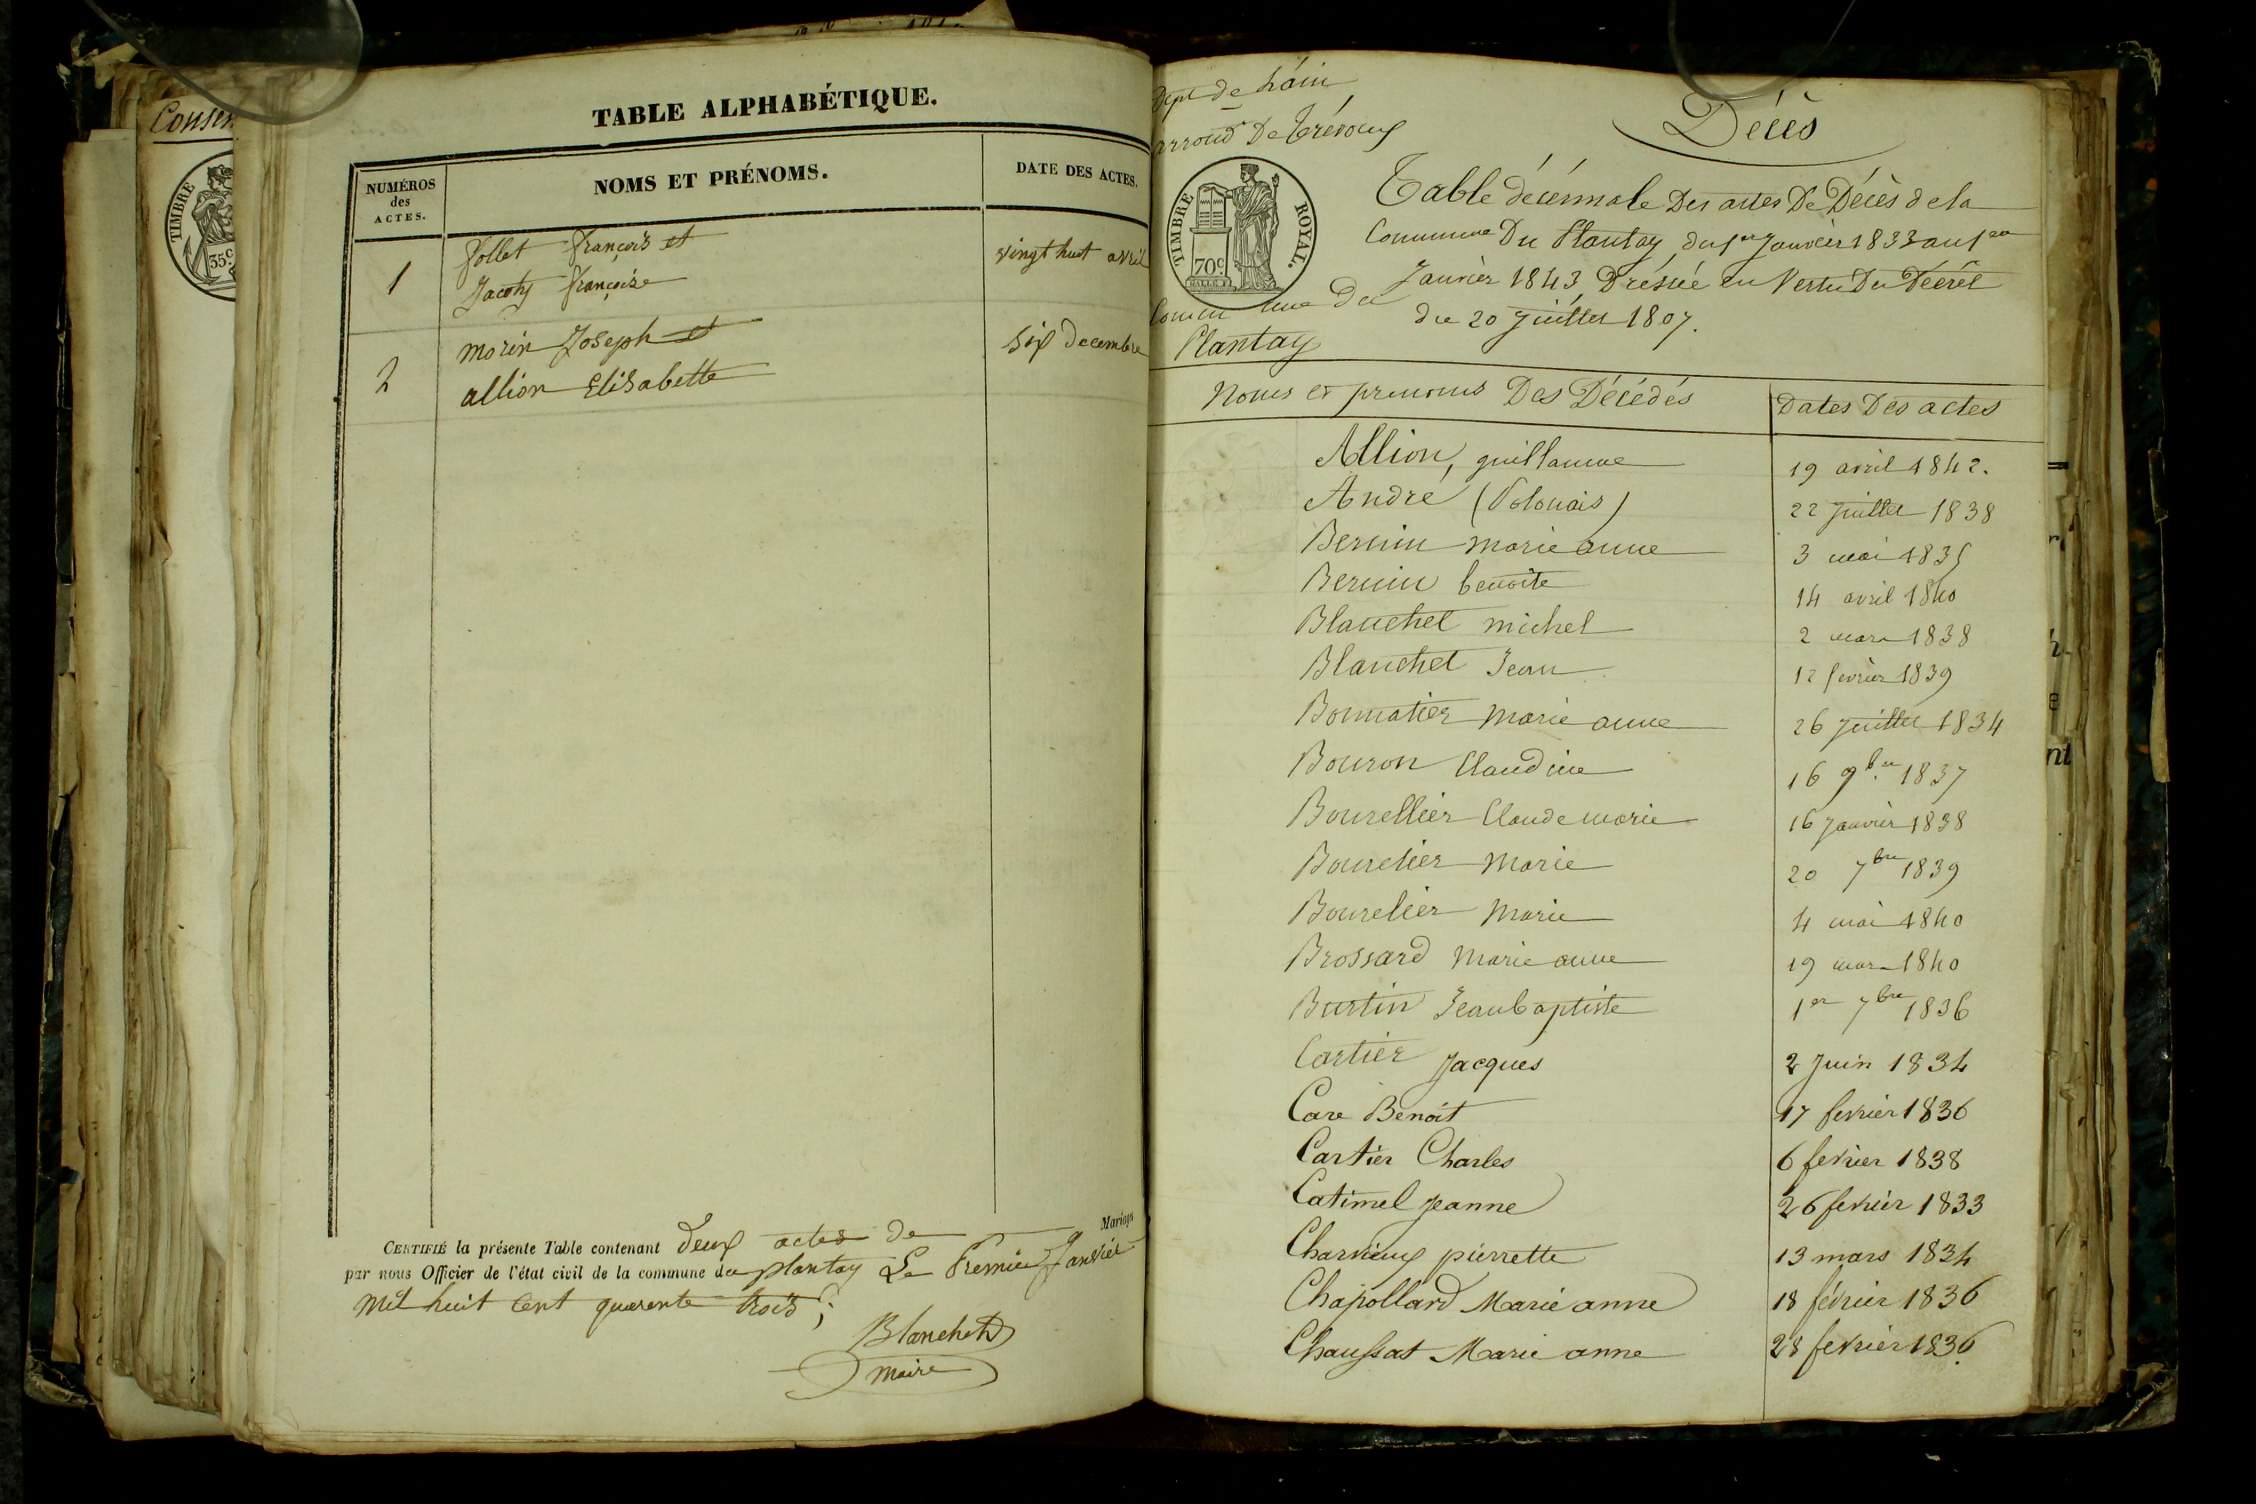 Consen
TIMBRE
35c
TABLE ALPHABÉTIQUE.
NUMÉROS des ACTES.
NOMS ET PRÉNOMS.
DATE DES ACTES.
1
Follet françois et
Jacoty françoise
vingt huit avril
2
morin Joseph et
allion Elisabette
six decembre
Mariages
CERTIFIÉ la présente Table contenant deux actes de
par nous Officier de l'état civil de la commune du plantay Le Premier Janvier
mil huit cent quarente trois ;
Blanchet
maire
Dept de L'ain
arrond. De Trévoux
TIMBRE ROYAL.
70c
Commune Du
Plantay
Décès
Table décennale Des actes De Décès de la
Commune Du Plantay, du 1er Janvier 1833 au 1er
Janvier 1843 Dressée en Vertu Du Décrêt
du 20 Juillet 1807.
Noms et prenoms Des Décédés
Dates Des actes
Allion, guillaume 19 avril 1842.
André (Polonais) 22 Juillet 1838
Bernin marie anne 3 mai 1835
Bernin benoite 14 avril 1840
Blanchet michel 2 mars 1838
Blanchet Jean 12 fevrier 1839
Bonnatier marie anne 26 Juillet 1834
Bouron Claudine 16 9bre 1837
Bourellier Claude marie 16 Janvier 1838
Bourelier Marie 20 7bre 1839
Bourelier Marie 4 mai 1840
Brossard Marie anne 19 mars 1840
Burtin Jean baptiste 1er 7bre 1836
Cartier Jacques 2 Juin 1834
Care Benoit 17 fevrier 1836
Cartier Charles 6 fevrier 1838
Catimel Jeanne 26 fevrier 1833
Charvieux pierrette 13 mars 1834
Chapolard Marie anne 18 février 1836
Chaussat Marie anne 28 fevrier 1836